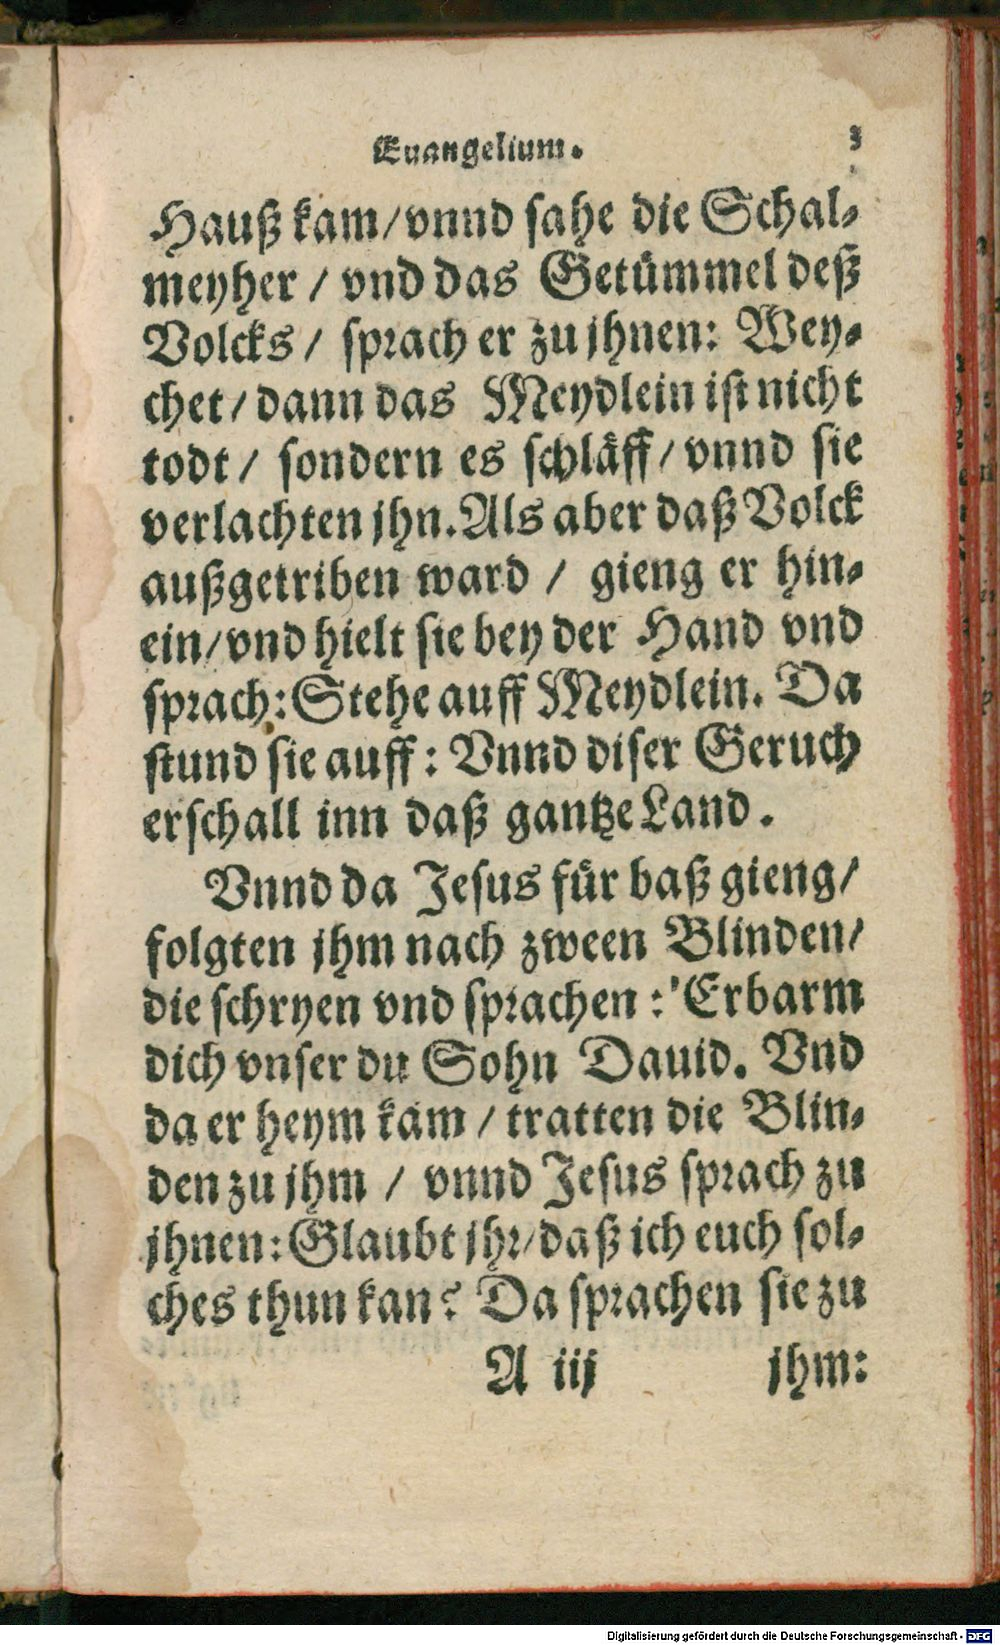 Euangelium. 3
Hauß kam/vnnd sahe die Schal-
meyher / vnd das Getümmel deß
Volcks / sprach er zu jhnen: Wey-
chet / dann das Meydlein ist nicht
todt / sondern es schläff / vnnd sie
verlachten jhn. Als aber daß Volck
außgetriben ward / gieng er hin-
ein/vnd hielt sie bey der Hand vnd
sprach: Stehe auff Meydlein. Da
stund sie auff: Vnnd diser Geruch
erschall inn daß gantze Land.
Vnnd da Jesus für baß gieng/
folgten jhm nach zween Blinden/
die schryen vnd sprachen: Erbarm
dich vnser du Sohn Dauid. Vnd
da er heym kam / tratten die Blin-
den zu jhm / vnnd Jesus sprach zu
jhnen: Glaubt jhr/daß ich euch sol-
ches thun kan? Da sprachen sie zu
A iij jhm:
Digitalisierung gefördert durch die Deutsche Forschungsgemeinschaft - DFG